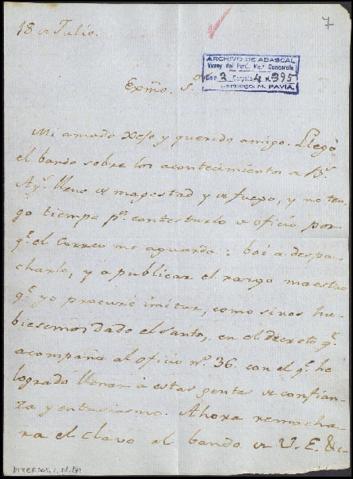 18 de Julio.
7
ARCHIVO DE ABASCAL
Virrey del Perú, Mqs. Concordia
Caja 2 Carpeta 4 N. 395
Domingo, M. PAVIA
Exmo. S.or
Mi amado Xefe y querido amigo. Llegó
el bando sobre los acontecimientos de Bs.
Ays. lleno de magestad y de fuego, y no ten-
go tiempo pa. contestarlo de oficio por-
qe. el correo me aguarda: boi a despa-
charlo, y a publicar el rasgo maestro
qe. yo procuré imitar, como si nos hu-
biesemos dado el santo, en el decreto, qe.
acompaña al oficio no. 36. con el qe. he
logrado llenar a estas gentes de confian-
za y entusiasmo. Ahora remacha-
ra el clavo el bando de V. E. &c.
DIVERSOS,